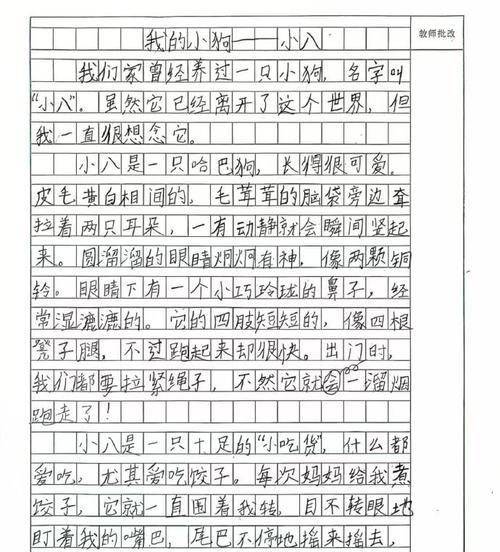 我的小狗——小八
教师批改
我们家曾经养过一只小狗，名字叫
“小八”。虽然它已经离开了这个世界，但
我一直很想念它。
小八是一只哈巴狗，长得很可爱。
皮毛黄白相间的，毛茸茸的脑袋旁边耷
拉着两只耳朵，一有动静就会瞬间竖起
来。圆溜溜的眼睛炯炯有神，像两颗铜
铃。眼睛下有一个小巧玲珑的鼻子，经
常湿漉漉的。它的四肢短短的，像四根
凳子腿，不过跑起来却很快。出门时，
我们都要拉紧绳子，不然它就会一溜烟
跑走了！
小八是一只十足的“小吃货”，什么都
爱吃，尤其爱吃饺子。每次妈妈给我煮
饺子，它就一直围着我转，目不转眼地
盯着我的嘴巴，尾巴不停地摇来摇去，